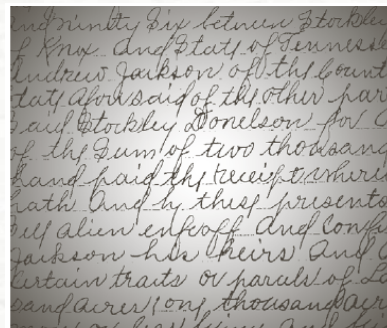 and ninety Six between Stockley
of Knox and State of Tenness
Andrew Jackson of the Count
State aforesaid of the other par
Said Stockley Donelson for a
of the Sum of two thousand
hand paid the receipt where
hath and by these presents
Sell alien enfeoff and Conf
Jackson his heirs and
Certain traits or parcels of L
sand acres, one thousand acr